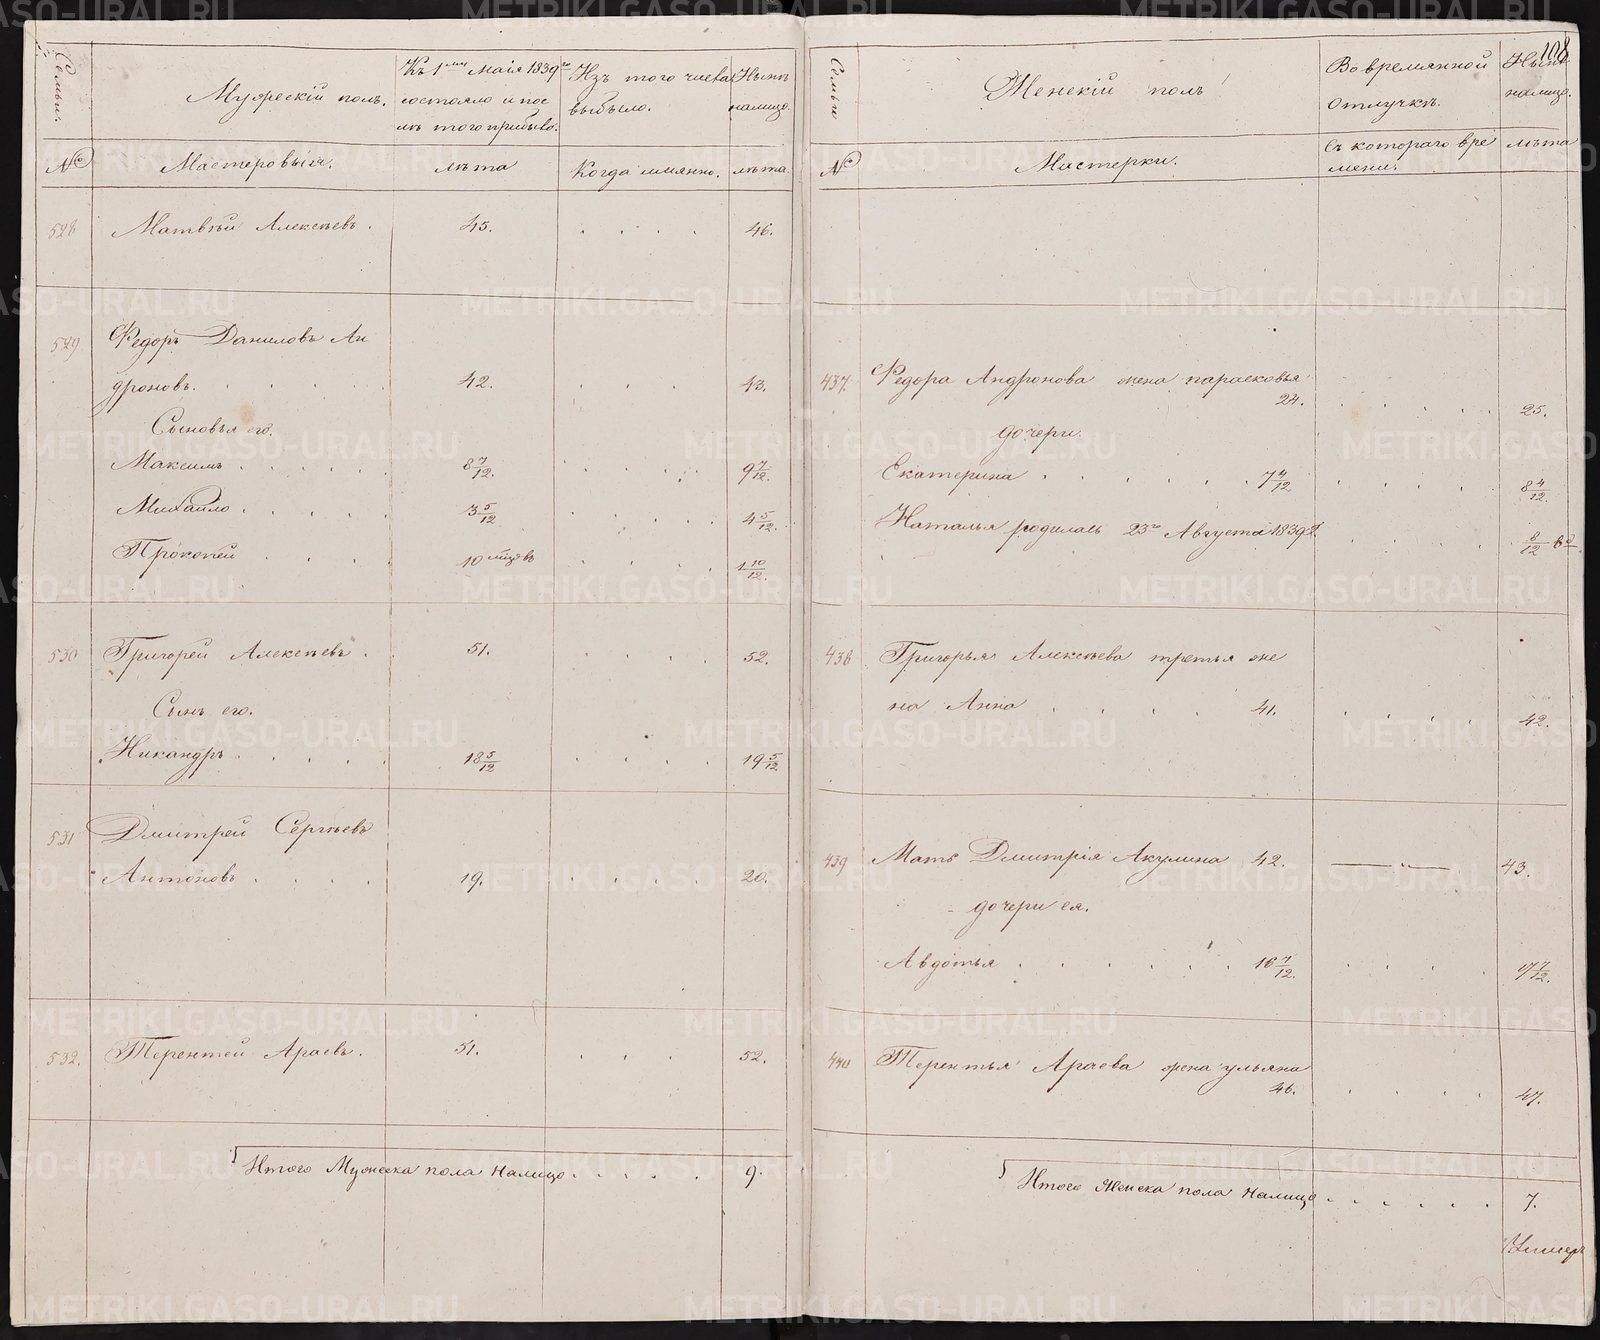 108
Семьи.
Мужескiй полъ.
Къ 1му Маiя 1839го
состояло и пос
лѣ того прибыло.
Изъ того числа
выбыло.
Нынѣ
налицо.
№
Мастеровыя.
лѣта
Когда имянно.
лѣта
528
Матвѣй Алексѣевъ.
45.
46.
529
Федоръ Даниловъ Ан
дроновъ.
42.
43.
Сыновья его.
Максимъ
8 7/12.
9 7/12.
Михайло
3 5/12
4 5/12.
Прокопей
10 мцовъ
1 10/12.
530
Григорей Алексѣевъ.
51.
52.
Сынъ его.
Никандръ
18 5/12
19 5/12
531
Дмитрей Сергѣевъ
Антоновъ
19.
20.
532.
Терентей Араевъ.
51.
52.
Итого Мужеска пола налицо
9.
Семьи
Женскiй полъ
Во времянной
отлучкѣ.
Нынѣ
налицо.
№
Мастерки.
Съ котораго вре
мени.
лѣта
437
Федора Андронова жена парасковья
24.
25.
дочери.
Екатерина
7 4/12
8 4/12.
Наталья родилась 23го Августа 1839
8/12
438
Григорья Алексѣева третья же
на Анна
41.
42.
439
Мать Дмитрiя Акулина 42.
43.
дочери ея.
Авдотья
16 7/12.
17 7/12.
440
Терентья Араева жена ульяна
46.
47.
Итого Женска пола налицо
7.